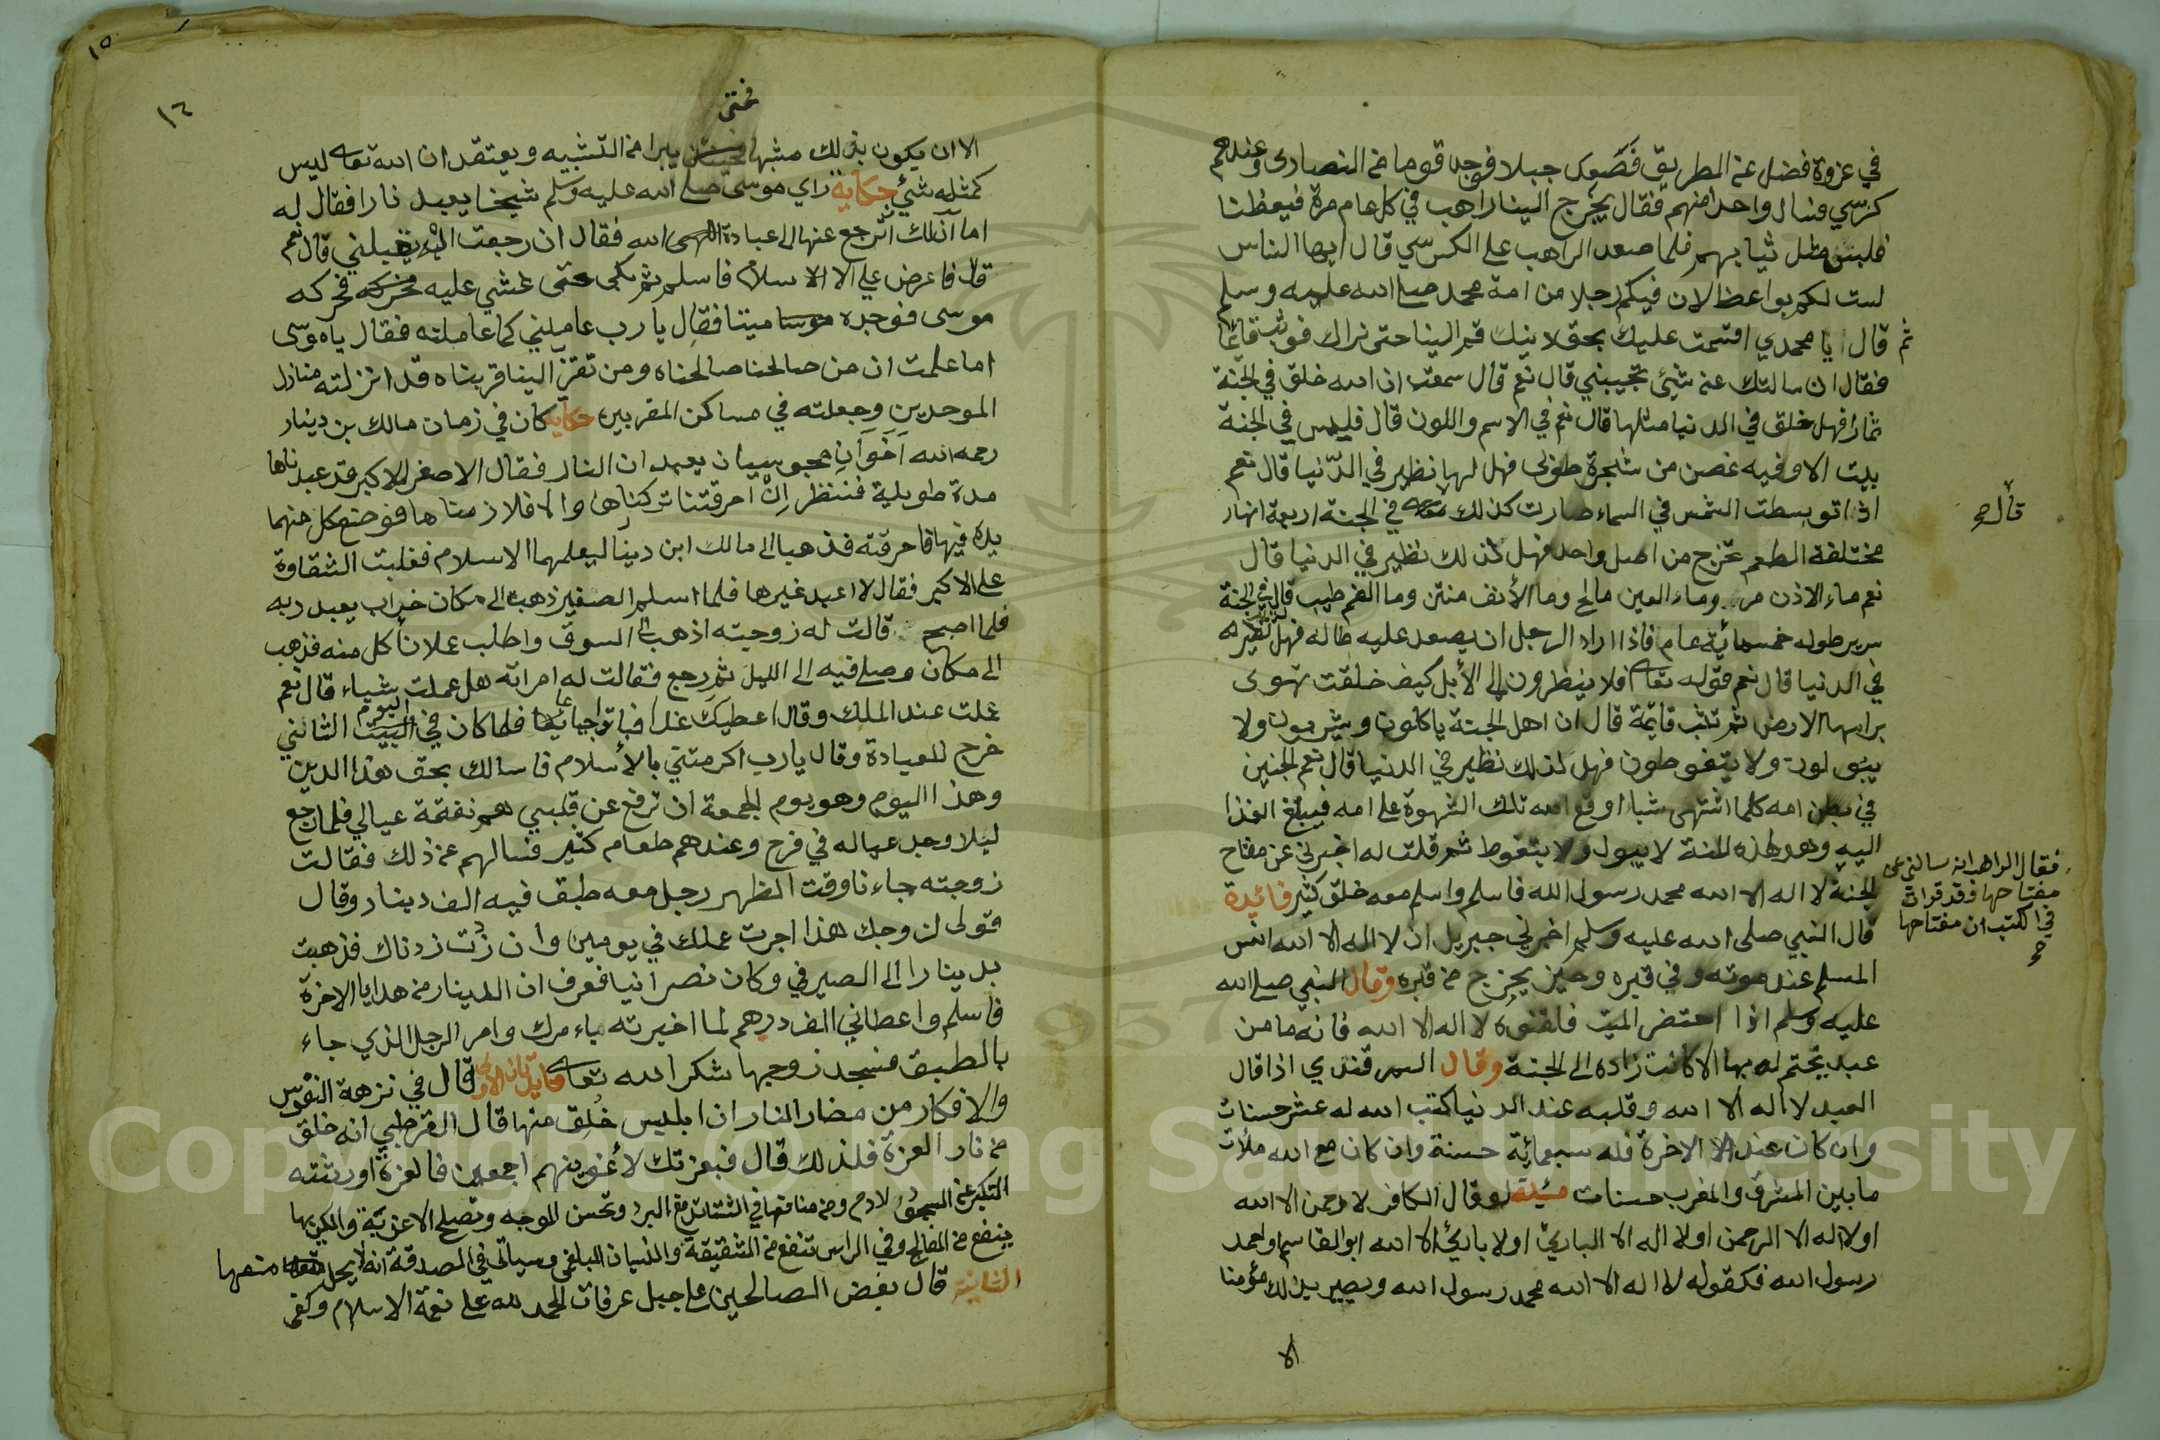 في عزوة فضل عن الطريق فصعد جبلا فوجد قوما من النصارى وعندهم
كرسي فسال واحدا منهم فقال يخرج الينا راهب في كل عام مرة فيعظنا
فلبس مثل ثيابهم فلما صعد الراهب على الكرسي قال ايها الناس
لست لكم بواعظ الان فيكم رجلا من امة محمد صلى الله عليه وسلم
ثم قال يا محمدي اقسمت عليك بحق لا نينك قم الينا حتى نراك فوثب قائما
فقال ان سالتك عن شيئ تجيبني قال نعم قال سمعت ان الله خلق في الجنة
ثمارا فهل خلق في الدنيا مثلها قال نعم في الاسم واللون قال فليس في الجنة
بيت الا وفيه غصن من شجرة طوبى فهل لها نظير في الدنيا قال نعم
اذا توسطت الشمس في السماء صارت كذلك في الجنة اربعة انهار
قال صح
مختلفة الطعم تخرج من اصل واحد فهل لذلك نظير في الدنيا قال
نعم ماء الاذن مر وماء العين مالح وما الأنف منتن وما الفم طيب قال في الجنة
سرير طوله خمسمائة عام فاذا اراد الرجل ان يصعد عليه طاله فهل نظيره
في الدنيا قال نعم قوله تعالى افلا ينظرون إلى الأبل كيف خلقت تهوى
براسها الارض ثم تثب قائمة قال ان اهل الجنة ياكلون ويشربون ولا
يبولون ولا يتغوطون فهل لذلك نظير في الدنيا قال نعم الجنين
في بطن امه كلما اشتهى شيا اوقع الله تلك الشهوة على امه فيبلغ الغذا
اليه وهد لهذه المنة لا يبول ولا يتغوط ثم قلت له اخبرني عن مفتاح
فقال الراهب انه سالني عن
مفتاحها وقد قرات
في الكتب ان مفتاحها
صح
الجنة لا اله الا الله محمد رسول الله فاسلم واسلم معه خلق كثير فائدة
قال النبي صلى الله عليه وسلم اخبرني جبريل ان لا اله الا الله انس
المسلم عند موته وفي قبره وحين يخرج من قبره وقال النبي صلى الله
عليه وسلم اذا احتضر الميت فلقنوه لا اله الا الله فانه ما من
عبد يختم له بها الا كانت زاده الى الجنة وقال السمرقندي اذا قال
العبد لا اله الا الله وقلبه عند الدنيا كتب الله له عشر حسنات
وان كان عند الاخرة فله سبعمائة حسنة وان كان مع الله ملأت
ما بين المشرق والمغرب حسنات مسئلة لو قال الكافر لا رحمن الا الله
اولا اله الا الرحمن اولا اله الا الباري اولا باري الا الله ابو القاسم او احمد
رسول الله فكقوله لا اله الا الله محمد رسول الله ويصير بذلك مؤمنا
الا
١٥
١٦
فحتى
الا ان يكون بذلك مشبها يبرا من التشبيه ويعتقد ان الله تعالى ليس
كمثله شيئ حكاية راي موسى صلى الله عليه وسلم شيخا يعبد نارا فقال له
اما آن لك ان ترجع عنها الى عبادة الله فقال ان رجعت اليه يقبلني قال نعم
قال فاعرض علي الاسلام فاسلم ثم بكى حتى غشي عليه فحركه
موسى فوجده ميتا فقال يا رب عاملني كما عاملته فقال يا موسى
اما علمت ان من صالحنا صالحناه ومن تقرب الينا قربناه قد انزلته منازل
الموحدين وجعلته في مساكن المقربين حكاية كان في زمان مالك بن دينار
رحمه الله اخوان مجوسيان يعبدان النار فقال الاصغر للاكبر قد عبدناها
مدة طويلة فننظر ان احرقتنا تركناها والا فلازمناها فوضع كل منهما
يده فيها فاحرقته فذهبا الى مالك ابن دينار ليعلمهما الاسلام فغلبت الشقاوة
على الاكبر فقال لا اعبد غيرها فلما اسلم الصغير ذهب الى مكان خراب يعبد ربه
فلما اصبح قالت له زوجيته اذهب الى السوق واطلب عملا ناكل منه فذهب
الى مكان وصلى فيه الى الليل ثم رجع فقالت له امراته هل عملت شياء قال نعم
عملت عند الملك وقال اعطيك غدا فباتوا جياعا فلما كان في اليوم الثاني
خرج للعيادة وقال يا رب اكرمتني بالأسلام فاسالك بحق هذا الدين
وهذا اليوم وهو يوم الجمعة ان ترفع عن قلبي هم نفقة عيالي فلما رجع
ليلا وجد عياله في فرح وعندهم طعام كثير فسالهم عن ذلك فقالت
زوجته جاءنا وقت الظهر رجل معه طبق فيه الف دينار وقال
قولي لزوجك هذا اجرت عملك في يومين وان زدت زدناك فذهبت
بدينار الى الصيرفي وكان نصرانيا فعرف ان الدينار من هدايا الاخرة
فاسلم واعطاني الف درهم لما اخبرته باءمرك وامر الرجل الذي جاء
بالطبق فسجد زوجها شكرا لله تعالى فايدتان الاولى قال في نزهة النفوس
والافكار من مضار النار ان ابليس خلق منها قال القرطبي انه خلق
من نار العزة فلذلك قال فبعزتك لأغوينهم اجمعين فالعزة اورثته
التكبر عن السجود لادم ومن منافعها في الشتاء تدفع البرد وتحسن الوجه وتصلح الاغذية والكي بها
ينفع من الفالج وفي الراس تنفع من الشقيقة والنسيان البلغمي وسياتي في الصدقة انه لا يحل منعها
الثانية قال بعض الصالحين على جبل عرفات الحمد لله على نعمة الاسلام وكفى
Copyright © King Saud University
957